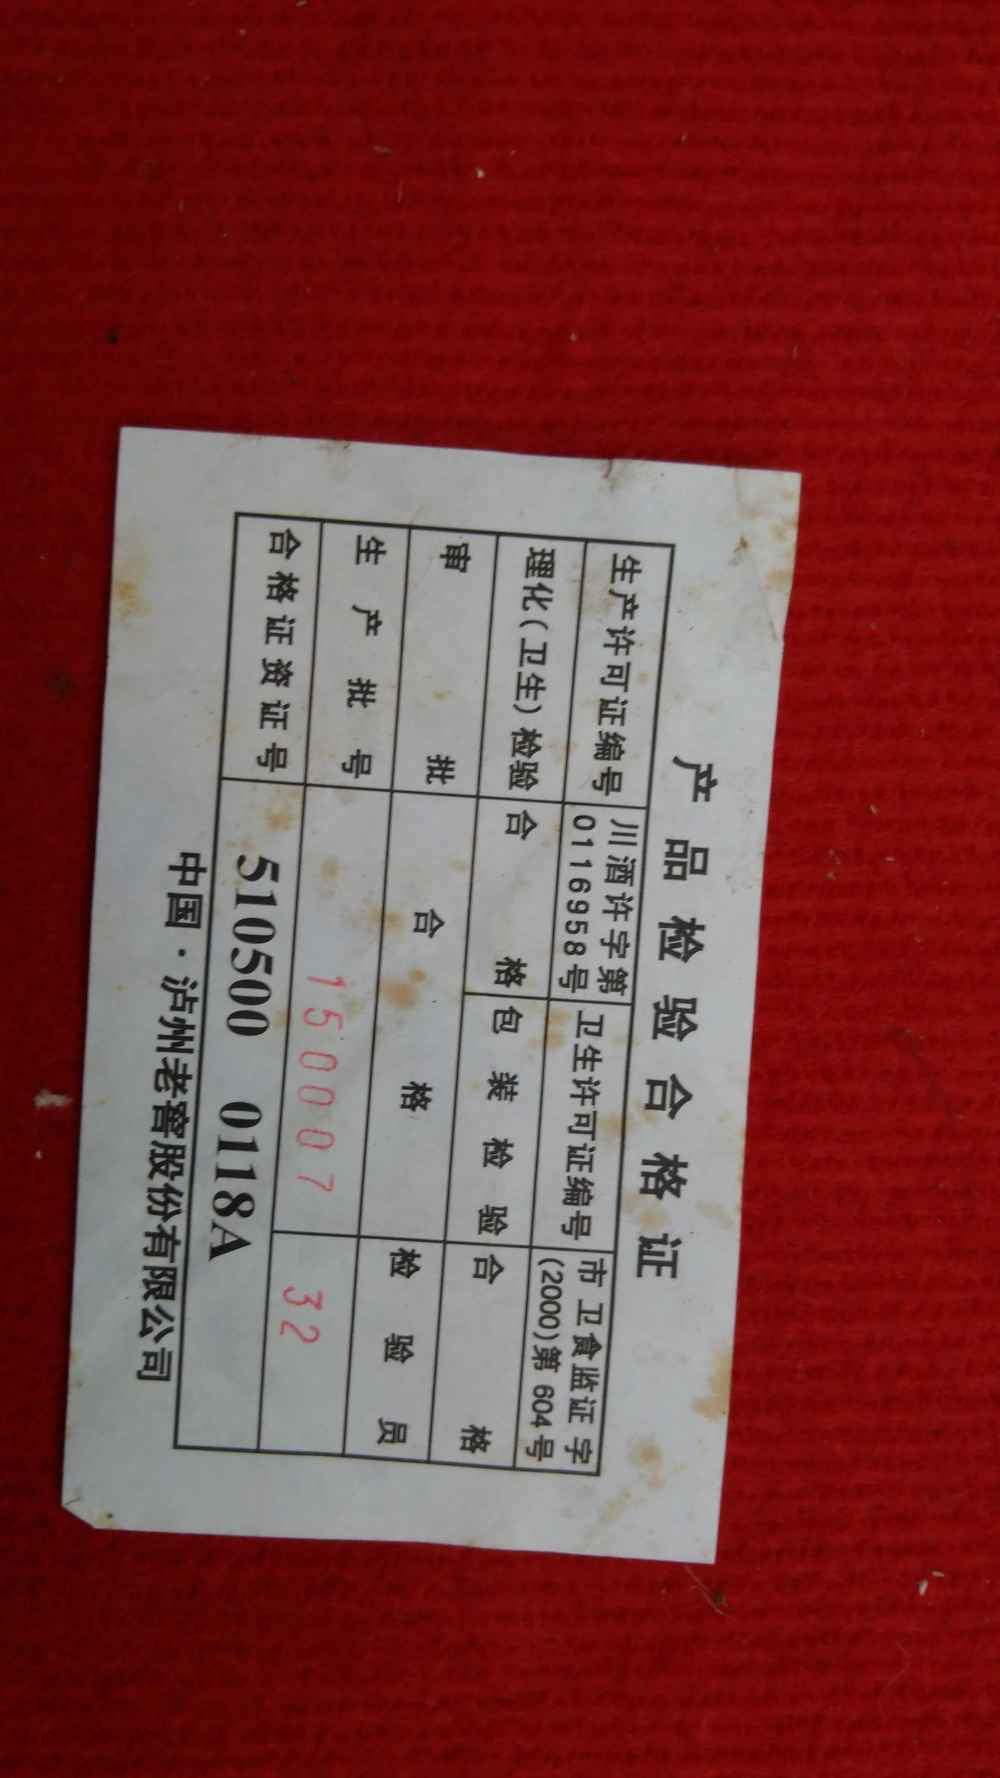 产品检验合格证
生产许可证编号 川酒许字第0116958号 卫生许可证编号 市卫食监证字(2000)第604号
理化(卫生)检验 合格 包装检验 合格
审批 合格 检验员
生产批号 150007 32
合格证资证号 510500 0118A
中国·泸州老窖股份有限公司